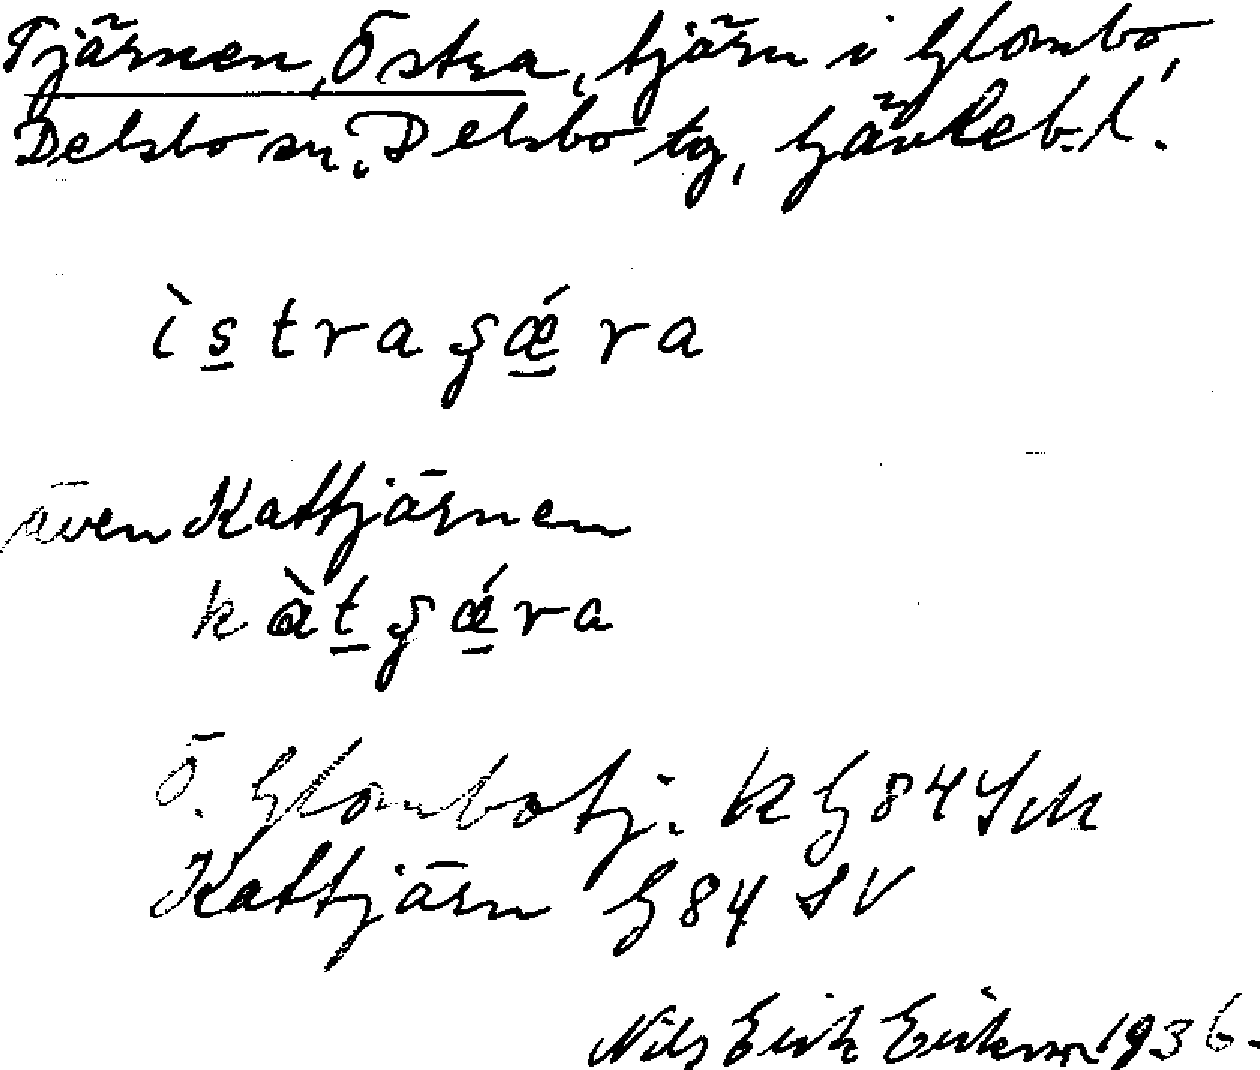 Tjärnen, Östra, tjärn i Glombo,
Delsbo sn, Delsbo tg, Gävleb. l.
ìstraʂǽra
även Kattjärnen
kàtʂǽra
Ö. Glombotj. k G 84
Kattjärn G 84 SV
Nils Erik Erikson 1936.